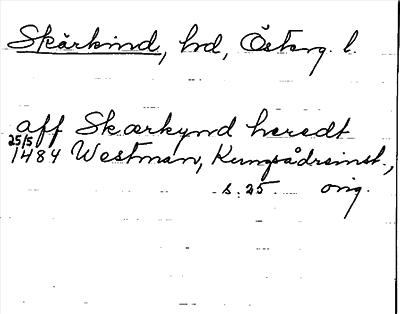 Skärkind, hd, Österg. l.
aff Skærkynd heredt
25/5
1484 Westman, Kungsådreinst.,
s. 25 orig.